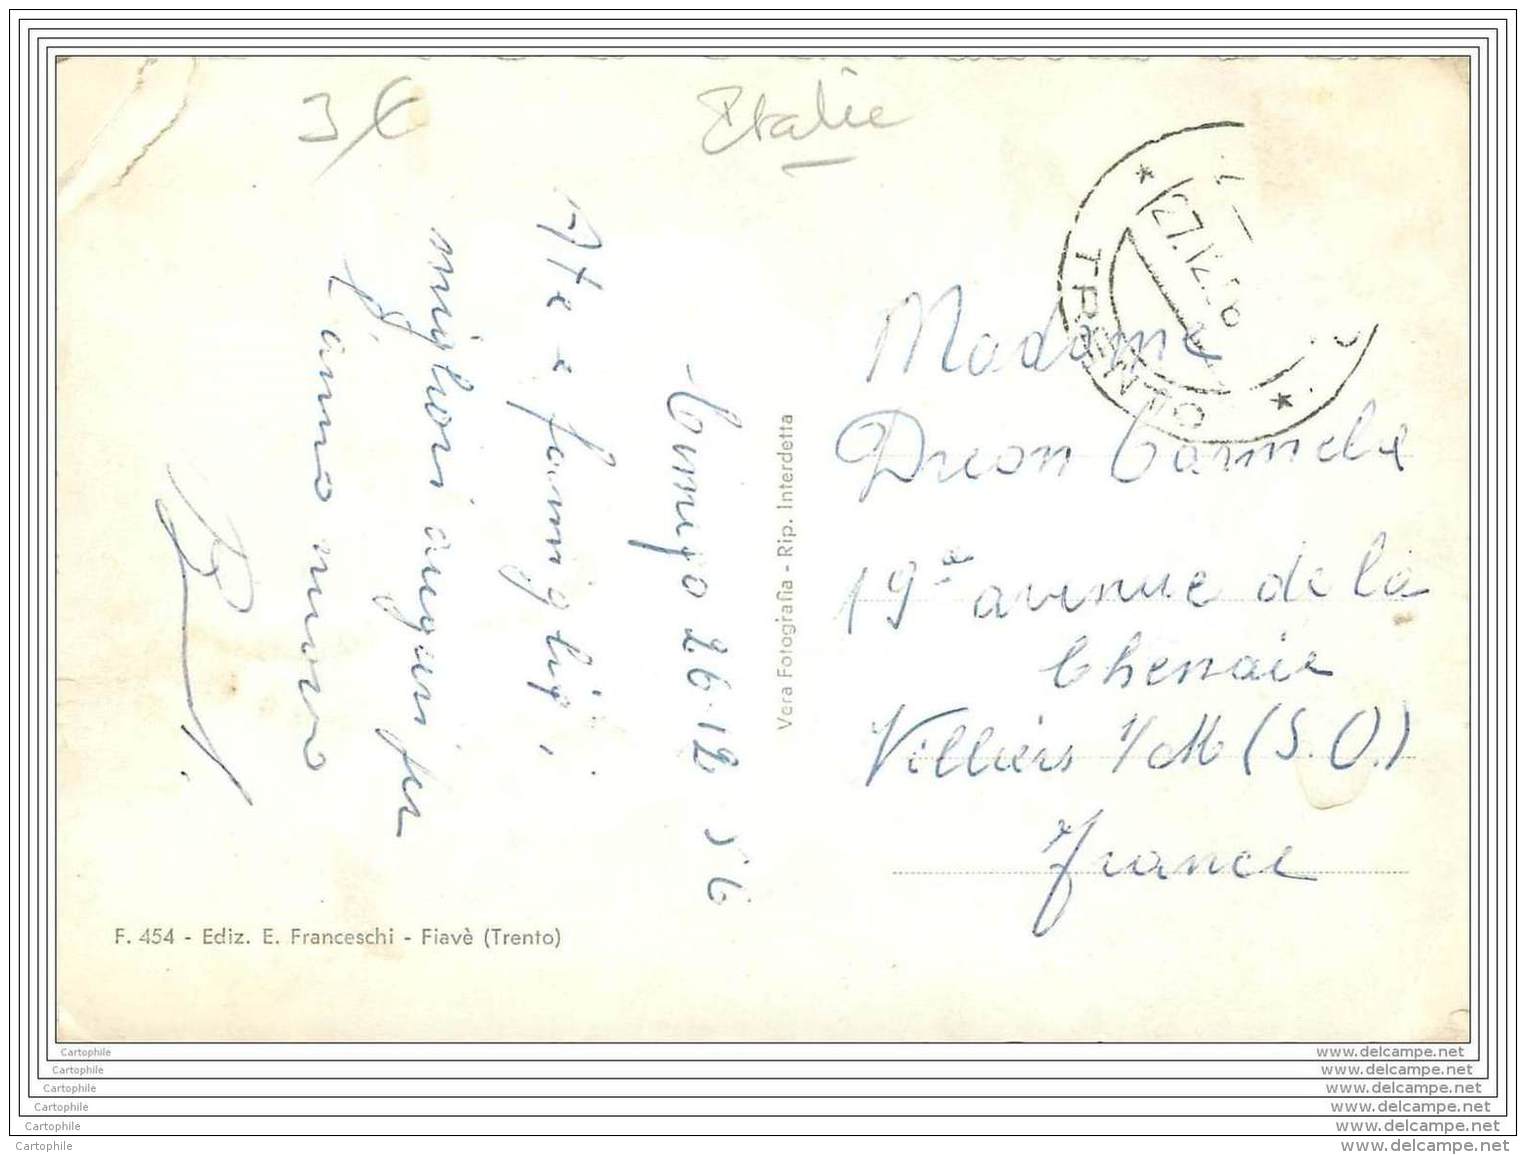 3 €
Italie
TRENTO
27.12.56
Cunigo 26.12.56
A te e famiglia,
migliori auguri per
l'anno nuovo
Madame
Dreon Carmela
19 avenue de la
Chenaie
Villiers s/M (S.O.)
France
Vera Fotografia - Rip. Interdetta
F. 454 - Ediz. E. Franceschi - Fiavè (Trento)
Cartophile
www.delcampe.net
Cartophile
www.delcampe.net
Cartophile
www.delcampe.net
Cartophile
www.delcampe.net
Cartophile
www.delcampe.net
Cartophile
www.delcampe.net